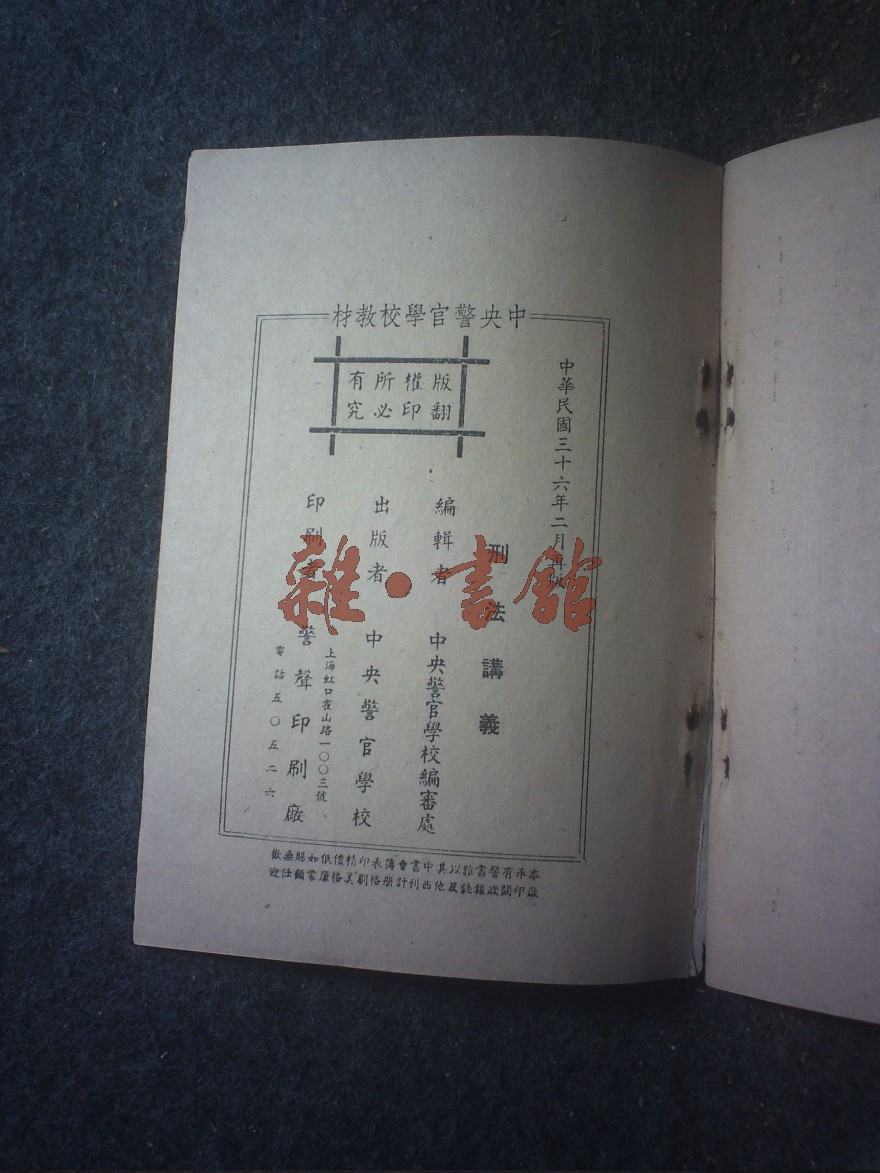 中央警官學校教材
版權所有
翻印必究
中華民國三十六年二月再版
刑法講義
編輯者 中央警官學校編審處
出版者 中央警官學校
印刷者 警聲印刷廠
上海虹口霍山路一〇〇三號
電話五〇五二六
本廠承印有關警政書報雜誌以及其他中西書刊會計簿册表格印刷精美價格低廉如蒙賜顧無任歡迎
雜·書館